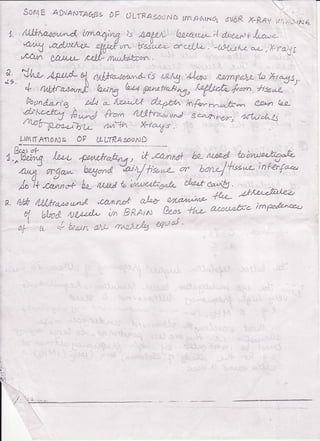 SOME ADVANTAGES OF ULTRASOUND IMAGING OVER X-RAY IMAGING
1. Ultrasound imaging is safer because it doesn't have
any adverse effect on tissues or cells. Whereas, X-rays
can cause cell mutation.
2. The speed of ultrasound is very slow compare to X-rays,
& ultrasound being less penetrating, reflects from tissue
boundaries as a result depth information can be
directly found from ultrasound scanner, which is
not possible with X-rays.
LIMITATIONS OF ULTRASOUND
Bcos of
1. being less penetrating, it cannot be used to investigate
any organ beyond air/tissue or bone/tissue interface
So it cannot be used to investigate chest cavity.
2. Ultrasound cannot also examine the structures
of blood vessels in BRAIN bcos the acoustic impedances
of it & brain are merely equal.